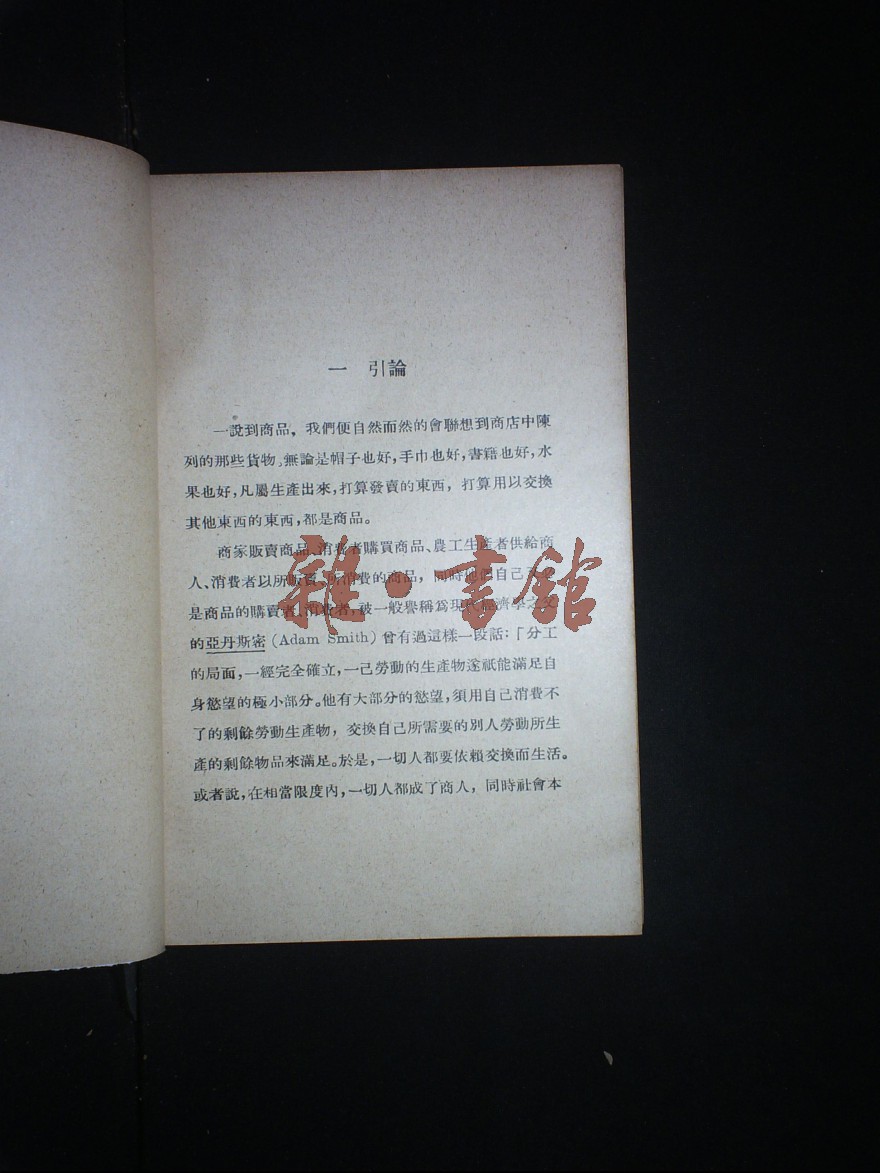 一 引論
一說到商品，我們便自然而然的會聯想到商店中陳
列的那些貨物。無論是帽子也好，手巾也好，書籍也好，水
果也好，凡屬生產出來，打算發賣的東西，打算用以交換
其他東西的東西，都是商品。
商家販賣商品、消費者購買商品、農工生產者供給商
人、消費者以所販賣、所消費的商品，同時他們自己
是商品的購賣者、消費者，被一般譽稱爲現代經濟學之父
的亞丹斯密 (Adam Smith) 曾有過這樣一段話：「分工
的局面，一經完全確立，一己勞動的生產物遂祇能滿足自
身慾望的極小部分。他有大部分的慾望，須用自己消費不
了的剩餘勞動生產物，交換自己所需要的別人勞動所生
產的剩餘物品來滿足。於是，一切人都要依賴交換而生活。
或者說，在相當限度內，一切人都成了商人，同時社會本
雜·書館